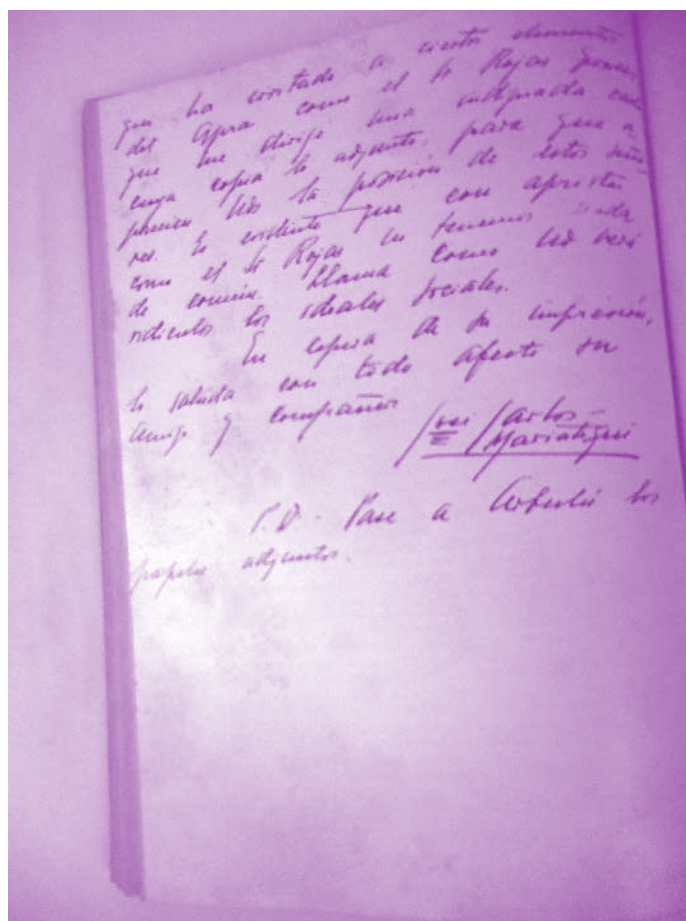 que ha invitado a ciertos elementos
del Apra como el Sr Rojas
que me dirige una indignada
cuya copia le adjunto, para que a
precien Uds la posición de estos seño
res. Es evidente que con apristas
como el Sr Rojas no tenemos nada
de común. Llama como Ud verá
ridículos los ideales sociales.
En espera de su impresión,
lo saluda con todo afecto su
amigo y compañero
José Carlos
Mariátegui
P.D. - Pase a Arbulú los
papeles adjuntos.